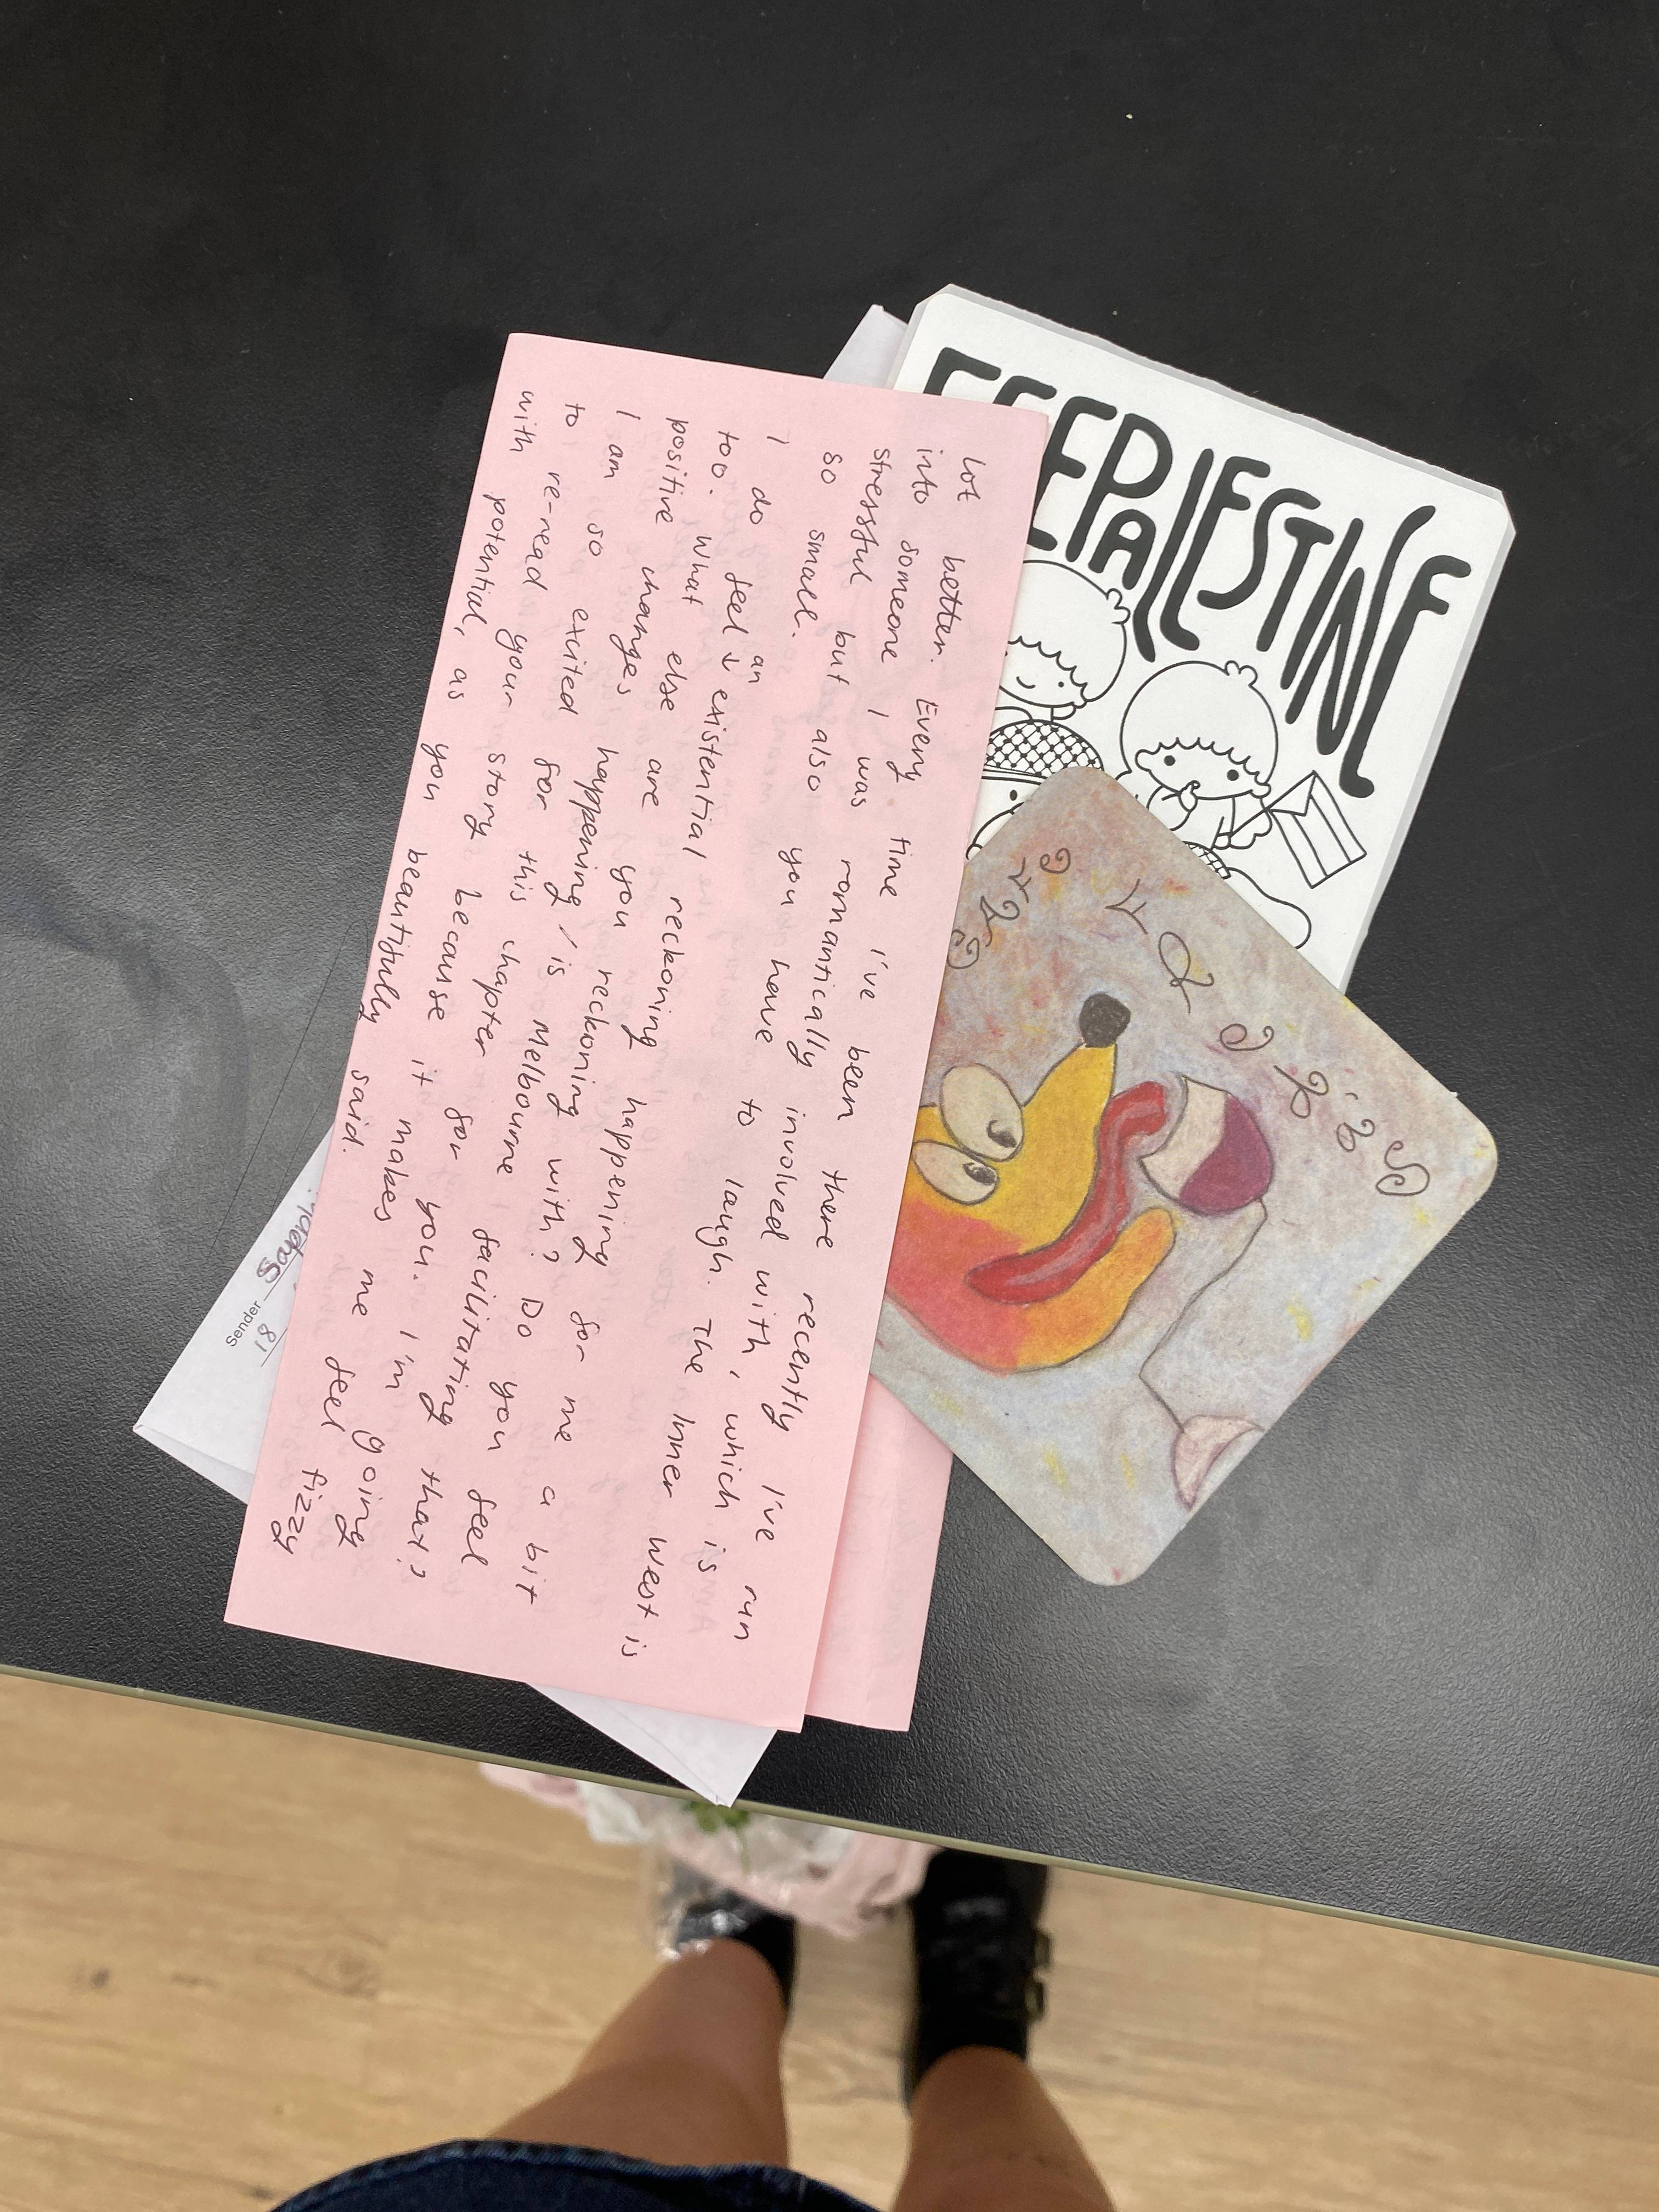 lot better. Every time I've been there recently I've run
into someone I was romantically involved with, which is
stressful but also you have to laugh. The Inner West is
so small.
an
I do feel ↓ existential reckoning happening for me a bit
too. What else are you reckoning with? Do you feel
positive changes happening / is Melbourne facilitating that?
I am so excited for this chapter for you. I'm going
to re-read your story because it makes me feel fizzy
with potential, as you beautifully said.
EEPALESTINE
Sender
18